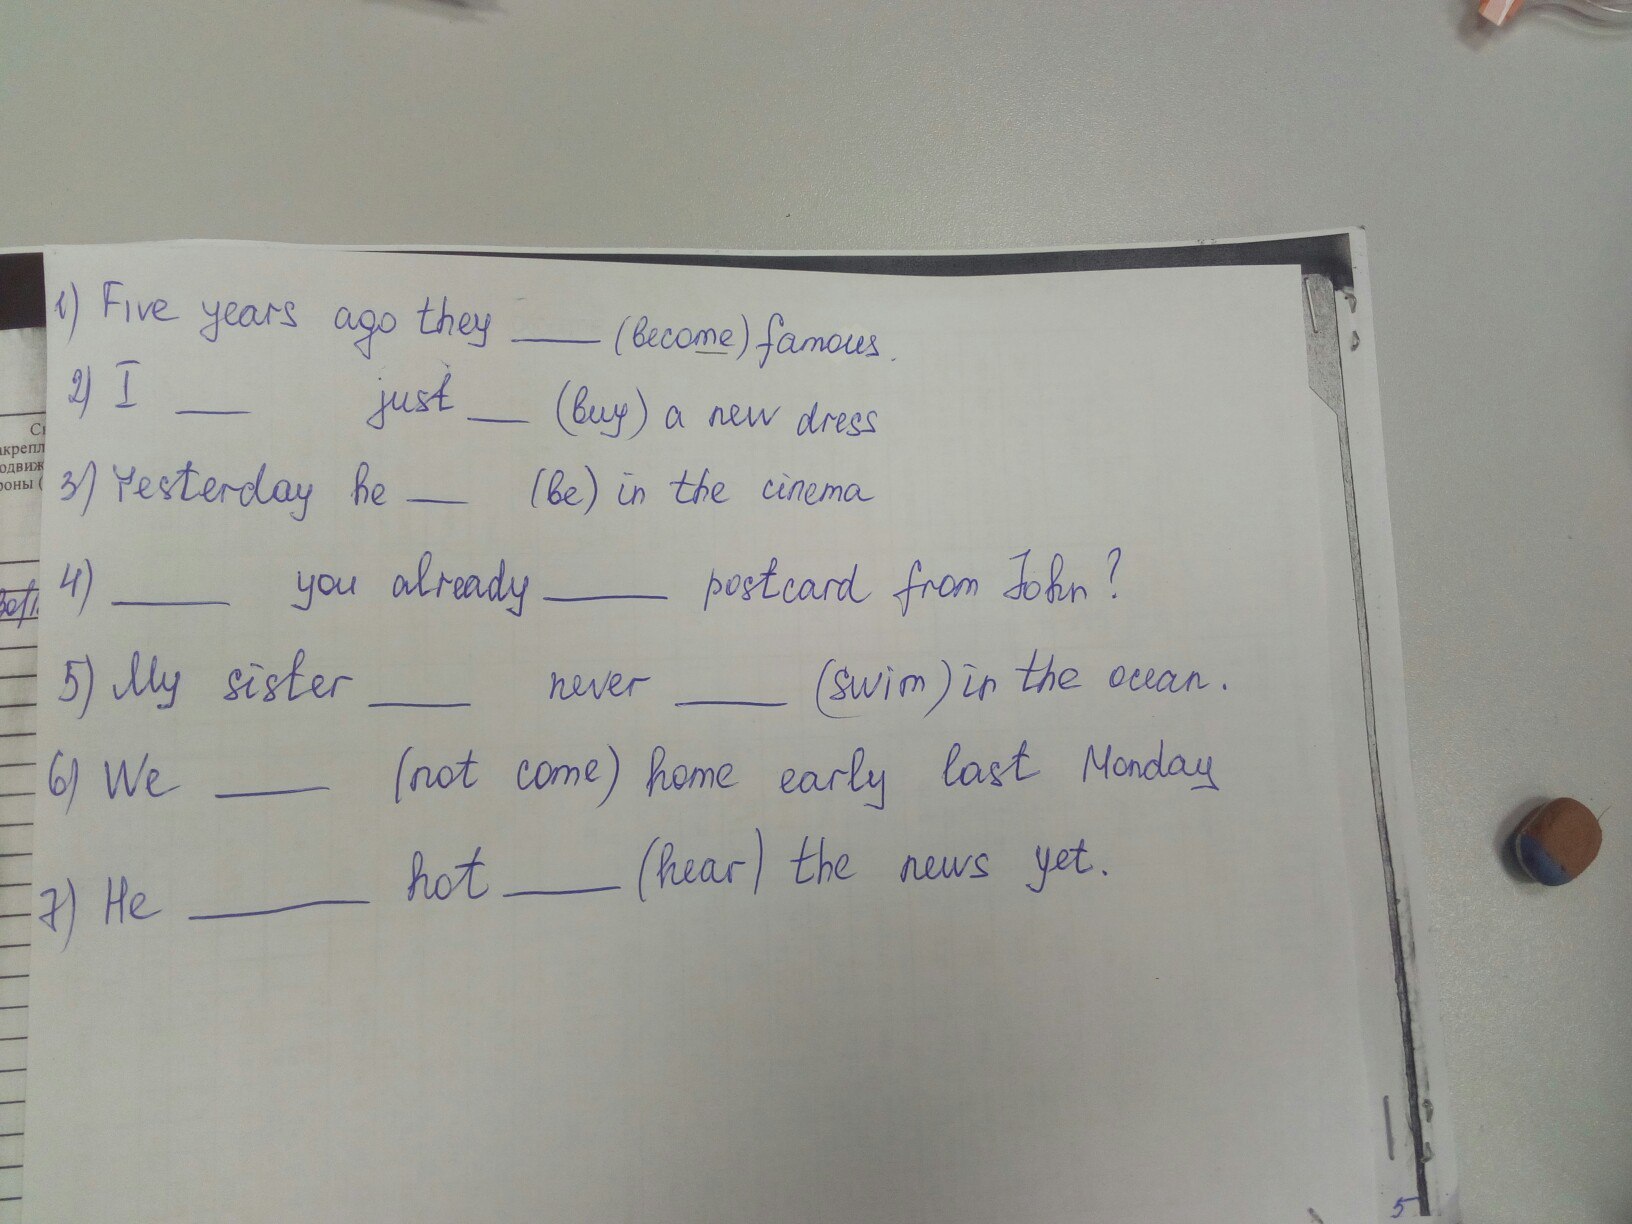 1) Five years ago they ___ (become) famous.
2) I ___ just ___ (buy) a new dress
3) Yesterday he ___ (be) in the cinema
4) ___ you already ___ postcard from John?
5) My sister ___ never ___ (swim) in the ocean.
6) We ___ (not come) home early last Monday
7) He ___ not ___ (hear) the news yet.
5